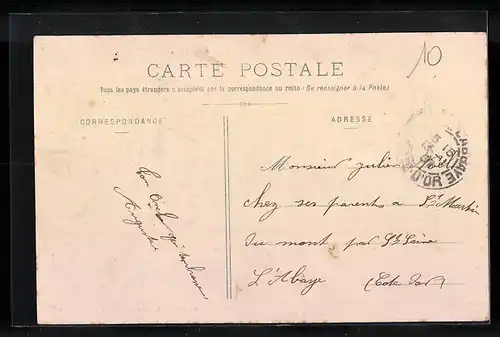 10
CARTE POSTALE
Tous les pays étrangers n'acceptent pas la correspondance au recto (Se renseigner à la Poste)
CORRESPONDANCE
ADRESSE
Monsieur Julien
chez ses parents a St Martin
du mont par St Seine
L'Abaye (Cote d'or)
Ton Oncle qui
Auguste
D'OR